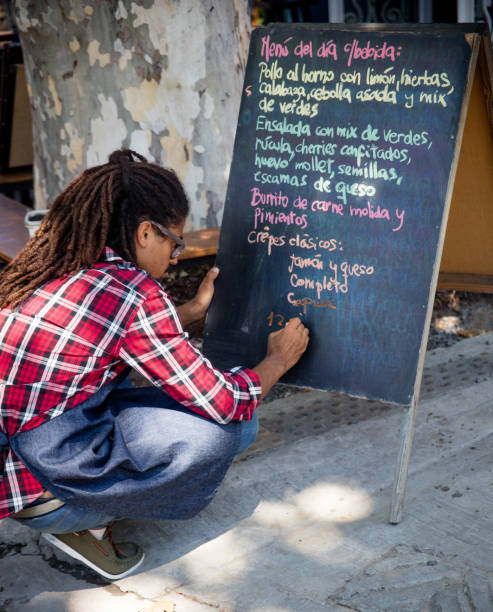 Menú del día c/bebida:
Pollo al horno con limón, hierbas,
calabaza, cebolla asada y mix
de verdes
Ensalada con mix de verdes,
rúcula, cherries confitados,
huevo mollet, semillas,
escamas de queso
Burrito de carne molida y
pimientos
Crêpes clásicos:
Jamón y queso
Completo
Caprese
12